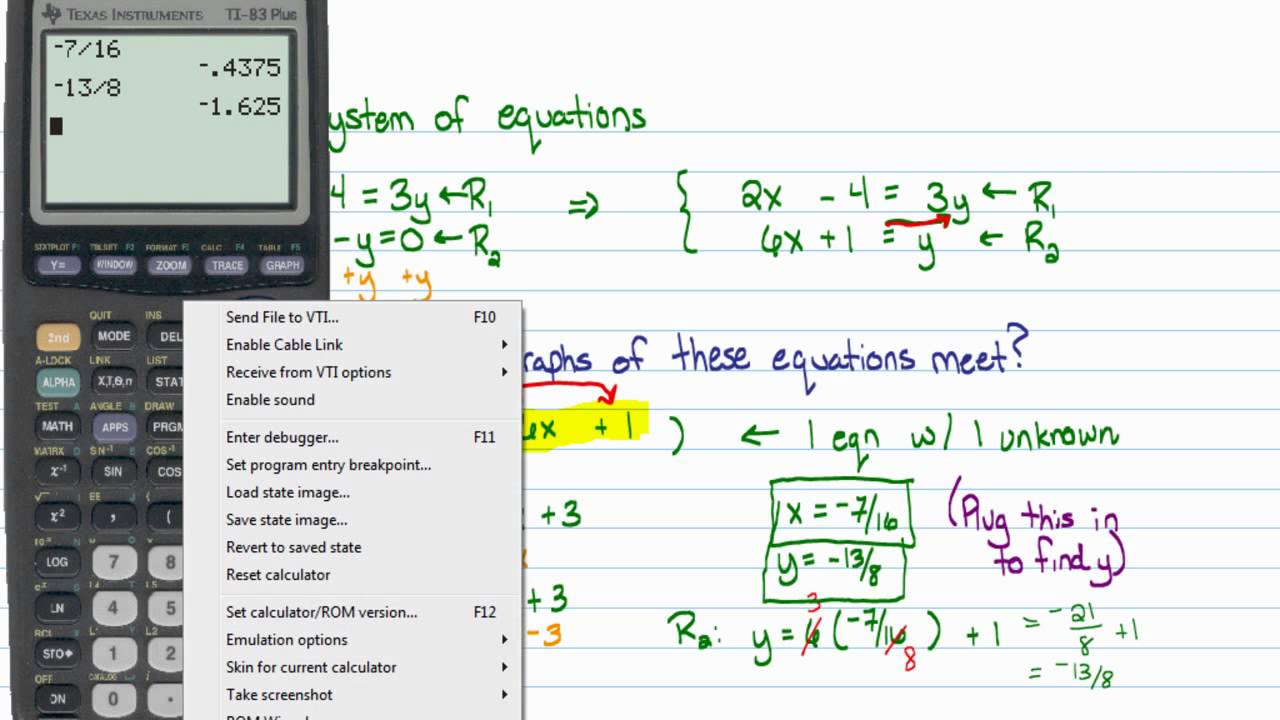 TEXAS INSTRUMENTS TI-83 Plus
-7/16
-.4375
-13/8
-1.625
STATPLOT F1 TBLSET F2 FORMAT F3 CALC F4 TABLE F5
Y= WINDOW ZOOM TRACE GRAPH
QUIT INS
2nd MODE DEL
A-LOCK LINK LIST
ALPHA X,T,Θ,n STAT
TEST A ANGLE B DRAW
MATH APPS PRGM
MATRX D SIN-1 E COS-1
x-1 SIN COS
√ I EE J {
x² , (
10x N
LOG 7 8
ex S L4 T L5
LN 4 5
RCL X L1 Y L2
STO▸ 1 2
OFF CATALOG
ON 0 .
ystem of equations
4 = 3y ← R1 ⇒ { 2x - 4 = 3y ← R1
- y = 0 ← R2 6x + 1 = y ← R2
+y +y
raphs of these equations meet?
6x + 1 ) ← 1 eqn w/ 1 unknown
+3
x = -7/16 (Plug this in
y = -13/8 to find y)
+ 3
- 3
R2: y = 6 (-7/16) + 1 = -21/8 + 1
3 8
= -13/8
Send File to VTI... F10
Enable Cable Link
Receive from VTI options
Enable sound
Enter debugger... F11
Set program entry breakpoint...
Load state image...
Save state image...
Revert to saved state
Reset calculator
Set calculator/ROM version... F12
Emulation options
Skin for current calculator
Take screenshot